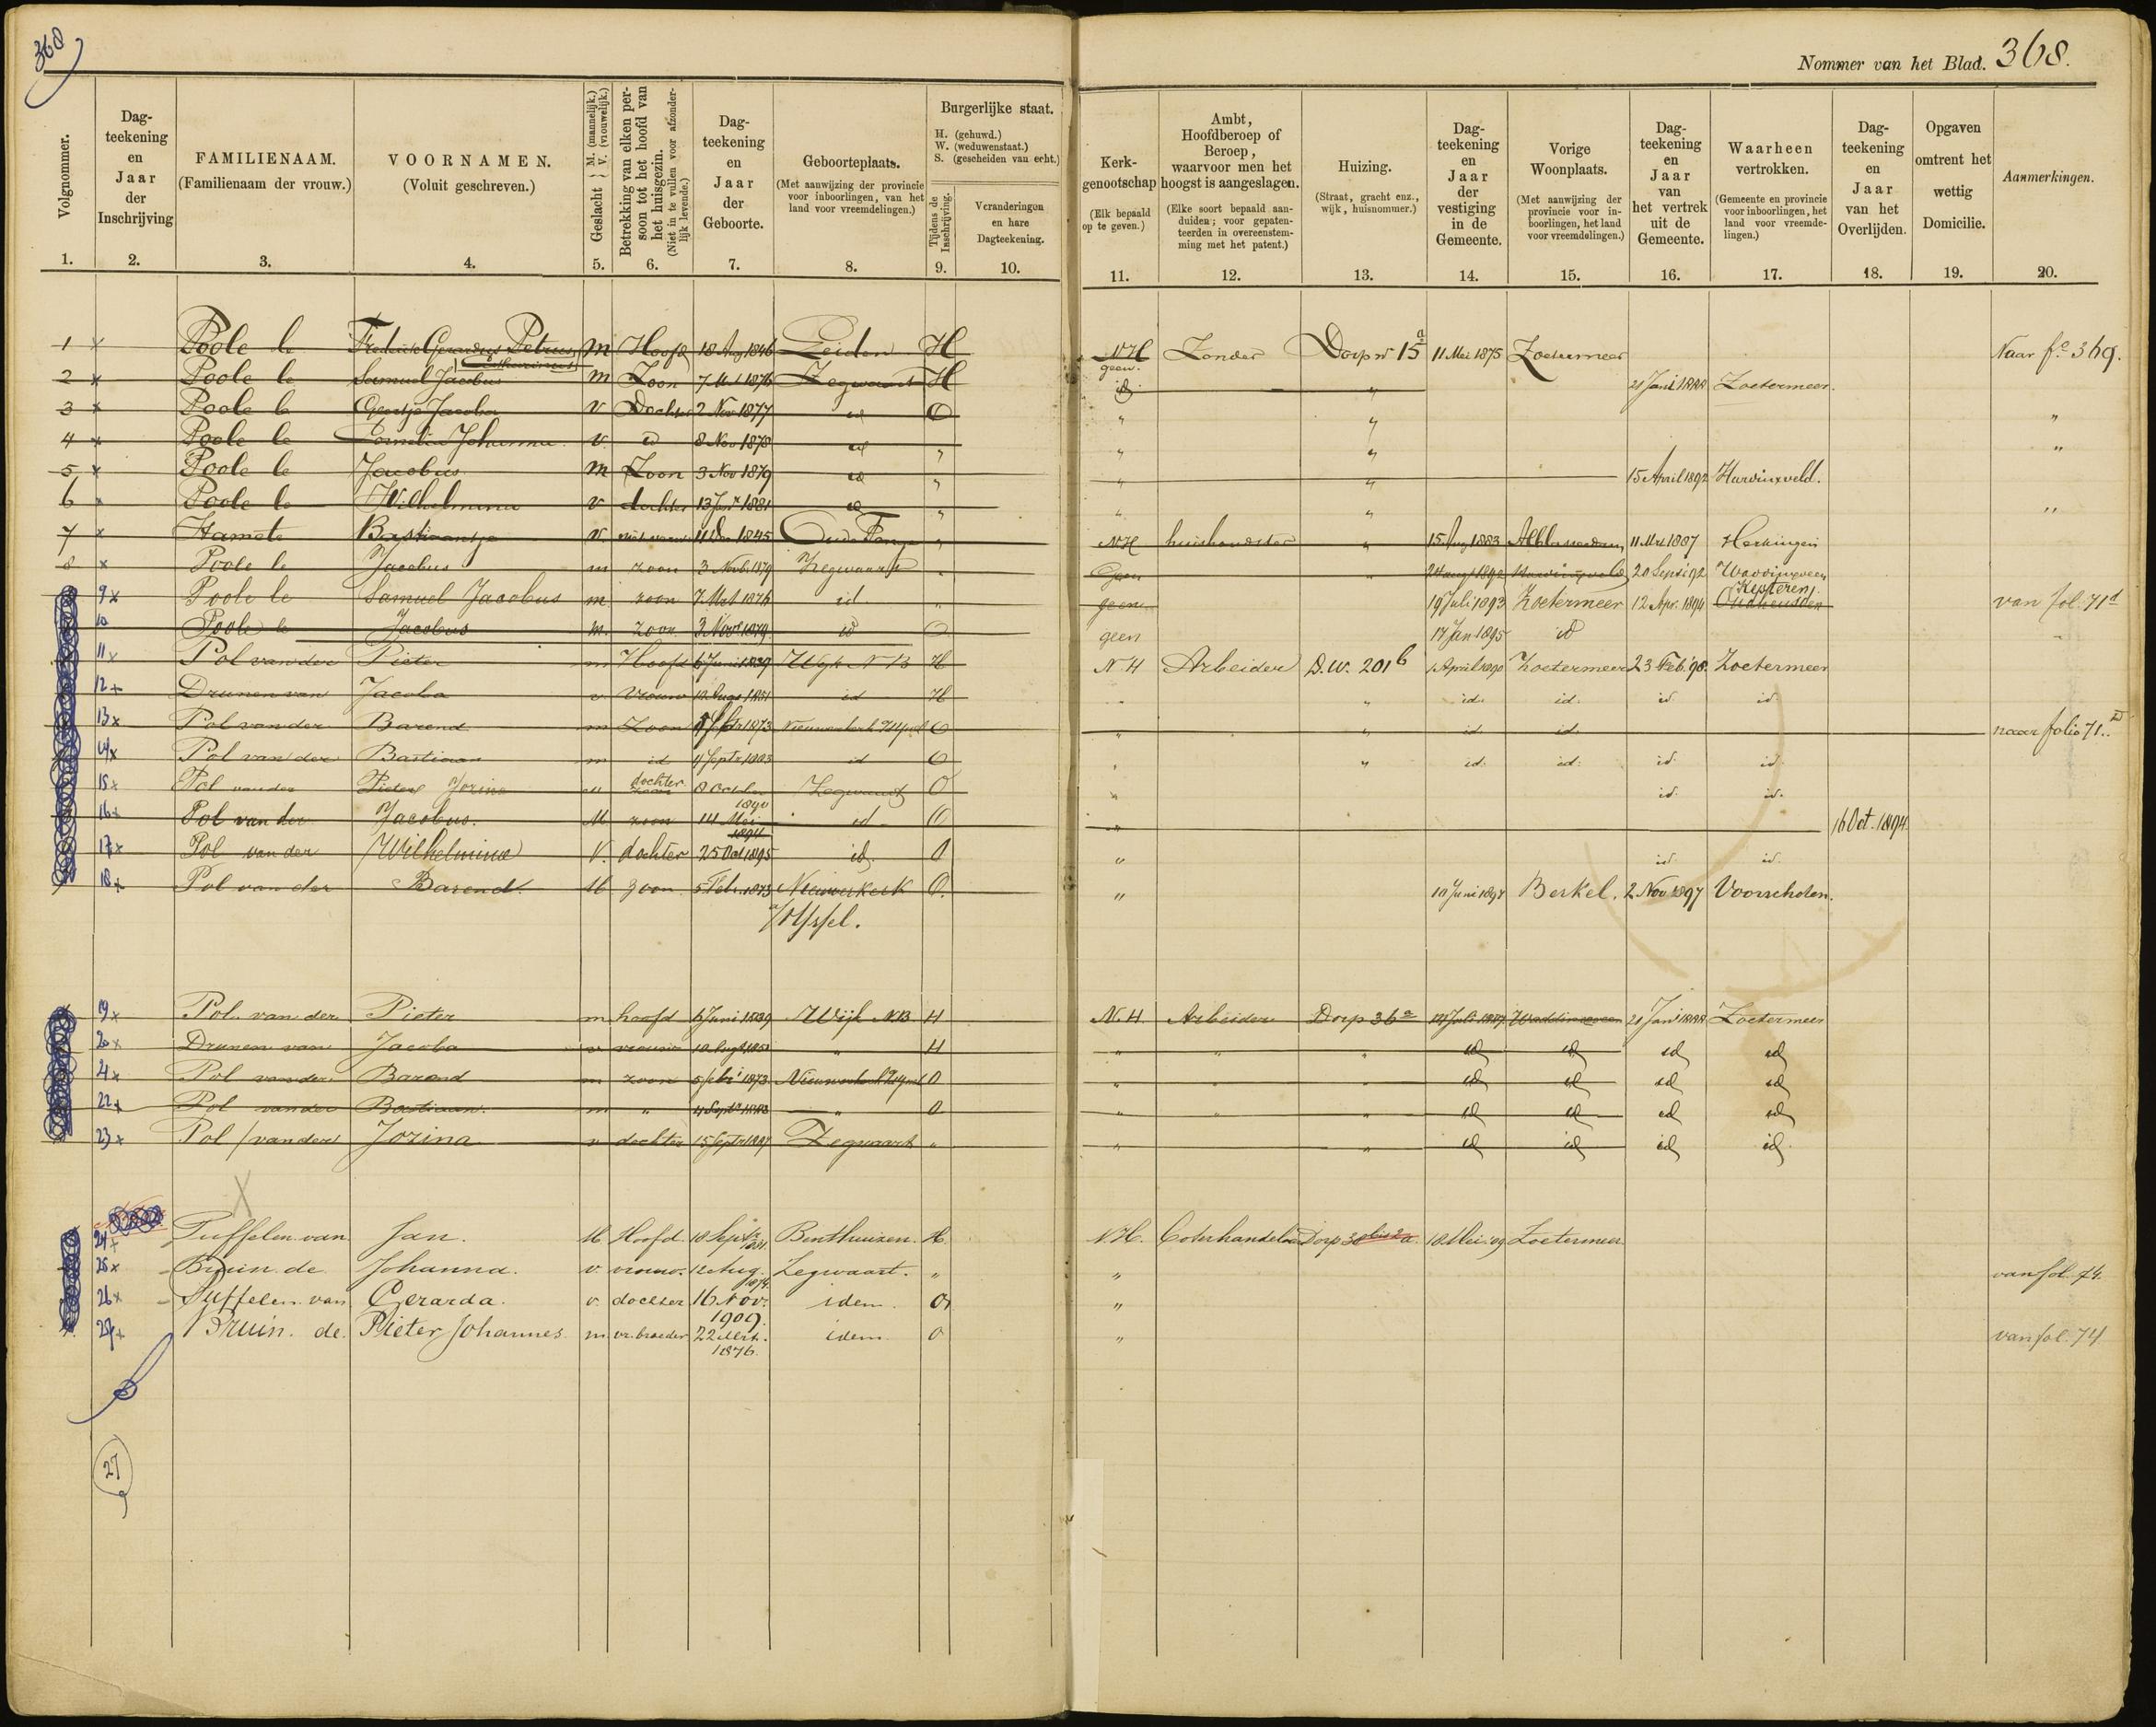 368
Nommer van het Blad. 368.
Volgnommer.
Dag-
teekening
en
Jaar
der
Inschrijving
FAMILIENAAM.
(Familienaam der vrouw.)
VOORNAMEN.
(Voluit geschreven.)
Geslacht { M. (mannelijk.) V. (vrouwelijk.)
Betrekking van elken per-
soon tot het hoofd van
het huisgezin.
(Niet in te vullen voor afzonder-
lijk levende.)
Dag-
teekening
en
Jaar
der
Geboorte.
Geboorteplaats.
(Met aanwijzing der provincie
voor inboorlingen, van het
land voor vreemdelingen.)
Burgerlijke staat.
H. (gehuwd.)
W. (weduwenstaat.)
S. (gescheiden van echt.)
Tijdens de
Inschrijving.
Veranderingen
en hare
Dagteekening.
Kerk-
genootschap
(Elk bepaald
op te geven.)
Ambt,
Hoofdberoep of
Beroep,
waarvoor men het
hoogst is aangeslagen.
(Elke soort bepaald aan-
duiden; voor gepaten-
teerden in overeenstem-
ming met het patent.)
Huizing.
(Straat, gracht enz.,
wijk, huisnommer.)
Dag-
teekening
en
Jaar
der
vestiging
in de
Gemeente.
Vorige
Woonplaats.
(Met aanwijzing der
provincie voor in-
boorlingen, het land
voor vreemdelingen.)
Dag-
teekening
en
Jaar
van
het vertrek
uit de
Gemeente.
Waarheen
vertrokken.
(Gemeente en provincie
voor inboorlingen, het
land voor vreemde-
lingen.)
Dag-
teekening
en
Jaar
van het
Overlijden.
Opgaven
omtrent het
wettig
Domicilie.
Aanmerkingen.
1. 2. 3. 4. 5. 6. 7. 8. 9. 10. 11. 12. 13. 14. 15. 16. 17. 18. 19. 20.
1 x Poole le Gerardus Petrus m Hoofd 18 Aug 1846 Leiden H NH Zonder Dorp no 15a 11 Mei 1875 Zoetermeer Naar fo 369.
geen.
2 x Poole le Samuel Jacobus m Zoon 7 1876 Zegwaart H id " 1888 Zoetermeer.
3 x Poole le Geertje Jacoba v Dochter 2 Nov 1877 id O " " "
4 x Poole le Cornelia Johanna v id 8 Nov 1878 id " " " "
5 x Poole le Jacobus m Zoon 3 Nov 1879 id " " " 15 April 1892 Hardinxveld.
6 x Poole le Wilhelmina v dochter 13 1881 id " " " "
7 x Hamete Bastiaantje v. 11 Dec 1845 Oude Tonge " NH huishoudster " 15 Aug 1883 Alblasserdam 11 Mrt 1887 Herkingen
8 x Poole le Jacobus m zoon 3 Novb. 1879 Zegwaart " Geen " 1892 Hardinxveld 20 Sept '92
9 x Poole le Samuel Jacobus m zoon 7 Mrt 1876 id " geen 19 Juli 1893 Zoetermeer 12 Apr. 1894 Kesteren van fol. 71d
10 Poole le Jacobus m. zoon 3 Novr. 1879. id O geen 17 Jan 1895 id
11 x Pol van der Pieter m Hoofd 6 Juni 1839 Wijk N B H N. H Arbeider D.W. 201b 1 April 1890 Zoetermeer 23 Feb. '98. Zoetermeer
12 x Drunen van Jacoba v. Vrouw 1851 id H " " id. id. id id.
13 x Pol van der Barend m Zoon 5 Febr 1873 O " " id id. naar folio 71.
14 x Pol van der Bastiaan m id 4 Septr 1883 id O " " id. id. id. id.
15 x Pol van der Jozina v dochter 8 October 1890 Zegwaart O " id. id.
16 x Pol van der Jacobus. M zoon 14 Mei 1894 id O " 16 Oct. 1894.
17 x Pol van der Wilhelmina V. dochter 25 Oct 1895 id. O " id. id.
18 x Pol van der Barend. M zoon 5 Feb. 1873 Nieuwerkerk O. " 10 Juni 1897 Berkel. 2 Nov 1897 Voorschoten.
a/IJssel.
19 x Pol. van der Pieter m hoofd 6 Juni 1839 Wijk NB H N. H. Arbeider Dorp 36a 1887 Waddinxveen 1888 Zoetermeer
20 x Drunen van Jacoba v vrouw " H " " " id id id id
21 x Pol van der Barend m zoon 5 Febr 1873 O " " " id id id id
22 x Pol van der Bastiaan. m " 4 Septr 1883 " O " " " id id id id
23 x Pol van der Jozina v dochter 15 Septr 1887 Zegwaart " " " id id id id.
24 x Tuffelen van Jan. M Hoofd. 18 Sept. Benthuizen. H. NH. Dorp 30 18 Mei '09 Zoetermeer
25 x Bruin de Johanna. v. vrouw. 12 Aug. 1874. Zegwaart. " " van fol. 74.
26 x Tuffelen van Gerarda. v. dochter 16 Nov. 1909. idem O "
27 x Bruin. de. Pieter Johannes m vr. broeder 22 Mrt. 1876. idem O " van fol. 74
27